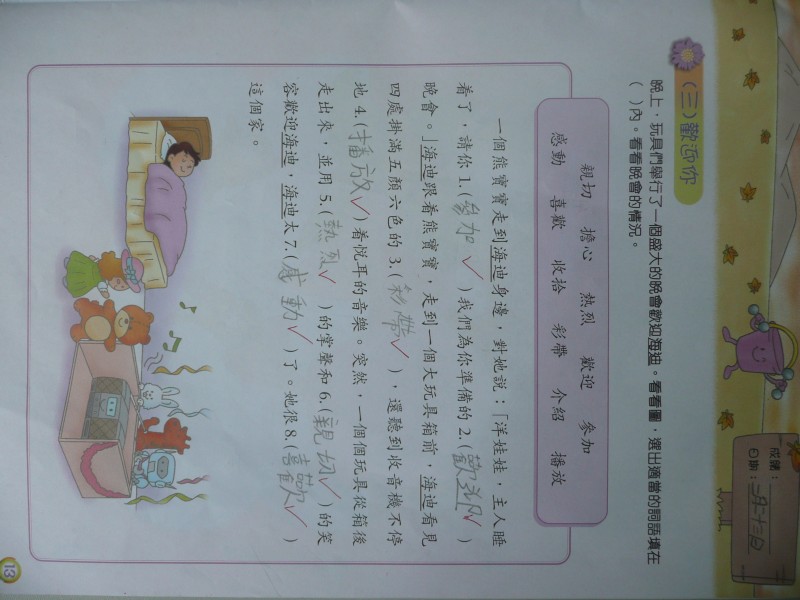 成績：
日期：二月二十三日
(三)歡迎你
晚上，玩具們舉行了一個盛大的晚會歡迎海迪。看看圖，選出適當的詞語填在
（　）內。看看晚會的情況。
親切　擔心　熱烈　歡迎　參加
感動　喜歡　收拾　彩帶　介紹　播放
一個熊寶寶走到海迪身邊，對她說：「洋娃娃，主人睡
着了，請你1.(參加✓)我們為你準備的2.(歡迎✓)
晚會。」海迪跟着熊寶寶，走到一個大玩具箱前，海迪看見
四處掛滿五顏六色的3.(彩帶✓)，還聽到收音機不停
地4.(播放✓)着悅耳的音樂。突然，一個個玩具從箱後
走出來，並用5.(熱烈✓)的掌聲和6.(親切✓)的笑
容歡迎海迪，海迪太7.(感動✓)了。她很8.(喜歡✓)
這個家。
13